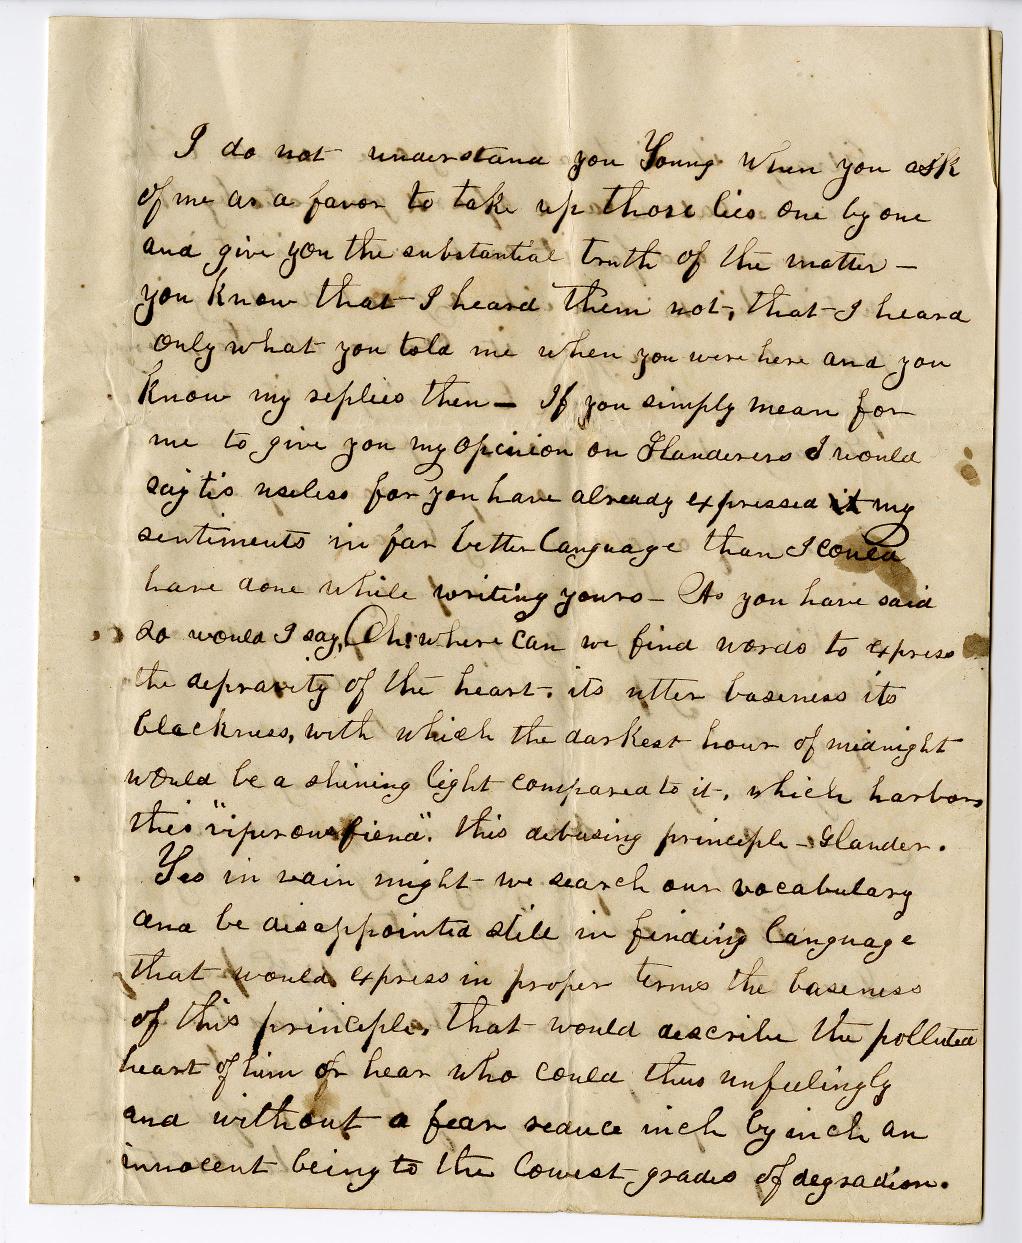 I do not understand you Young when you ask
of me as a favor to take up those lies one by one
and give you the substantial truth of the matter –
you know that I heard them not, that I heard
only what you told me when you were here and you
know my replies then – If you simply mean for
me to give you my opinion on Slanderers I would
say tis useless for you have already expressed it my
sentiments in far better language than I could
have done while writing yours – As you have said
so would I say, Oh! where can we find words to express
the depravity of the heart. its utter baseness its
blackness, with which the darkest hour of midnight
would be a shining light compared to it, which harbors
this "viperous fiend". this debasing principle – Slander.
Yes in vain might we search our vocabulary
and be disappointed still in finding language
that would express in proper terms the baseness
of this principle, that would describe the polluted
heart of him or hear who could thus unfeelingly
and without a fear reduce inch by inch an
innocent being to the lowest grades of degradion.